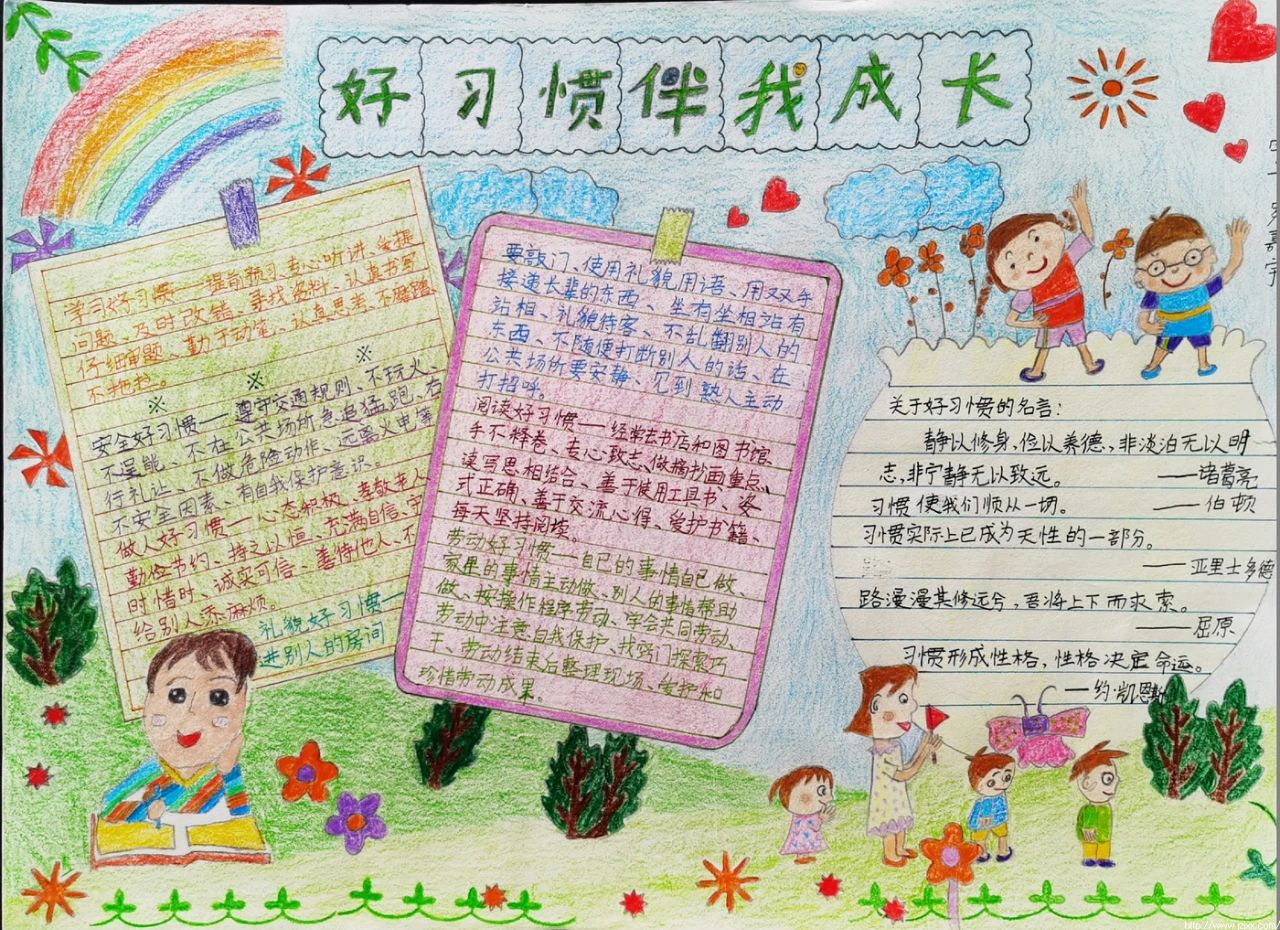 好习惯伴我成长
学习好习惯——提前预习、专心听讲、爱提
问题、及时改错、寻找资料、认真书写
仔细审题、勤于动笔、认真思考、不磨蹭
不拖拉。
※ ※ ※
安全好习惯——遵守交通规则、不玩火、
不逞能、不在公共场所急追猛跑、右
行礼让、不做危险动作、远离火电等
不安全因素、有自我保护意识。
做人好习惯——心态积极、孝敬老人
勤俭节约、持之以恒、充满自信、守
时惜时、诚实可信、善待他人、不
给别人添麻烦。
礼貌好习惯——
进别人的房间
要敲门、使用礼貌用语、用双手
接递长辈的东西、坐有坐相站有
站相、礼貌待客、不乱翻别人的
东西、不随便打断别人的话、在
公共场所要安静、见到熟人主动
打招呼。
阅读好习惯——经常去书店和图书馆
手不释卷、专心致志、做摘抄画重点、
读写思相结合、善于使用工具书、姿
式正确、善于交流心得、爱护书籍、
每天坚持阅读。
劳动好习惯——自己的事情自己做、
家里的事情主动做、别人的事情帮助
做、按操作程序劳动、学会共同劳动、
劳动中注意自我保护、找窍门探索巧
干、劳动结束后整理现场、爱护和
珍惜劳动成果。
关于好习惯的名言：
静以修身，俭以养德，非淡泊无以明
志，非宁静无以致远。 ——诸葛亮
习惯使我们顺从一切。 ——伯顿
习惯实际上已成为天性的一部分。
——亚里士多德
路漫漫其修远兮，吾将上下而求索。
——屈原
习惯形成性格，性格决定命运。
——约·凯恩斯